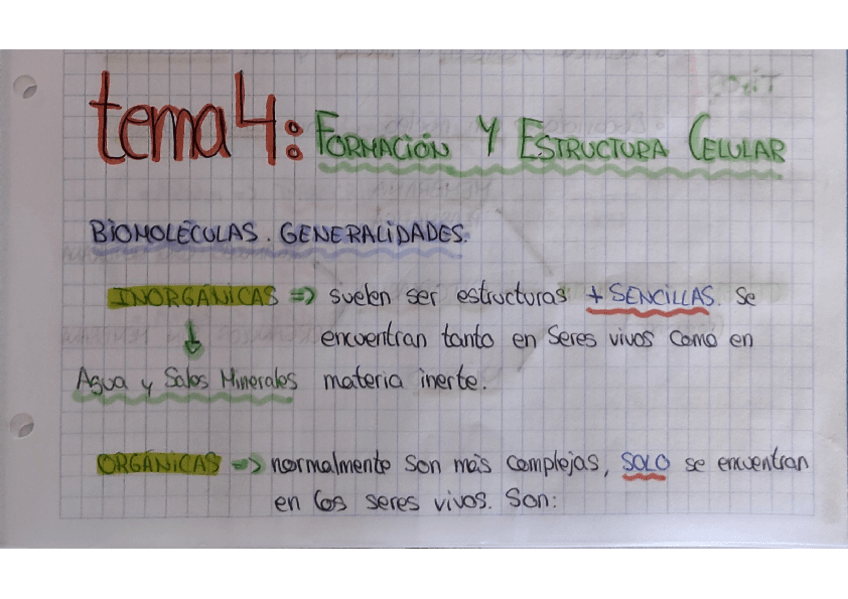 tema 4: FORMACIÓN Y ESTRUCTURA CELULAR
BIOMOLÉCULAS. GENERALIDADES.
INORGÁNICAS => suelen ser estructuras + SENCILLAS. Se
encuentran tanto en Seres vivos como en
Agua y Sales Minerales materia inerte.
ORGÁNICAS => normalmente son más complejas, SOLO se encuentran
en los seres vivos. Son: